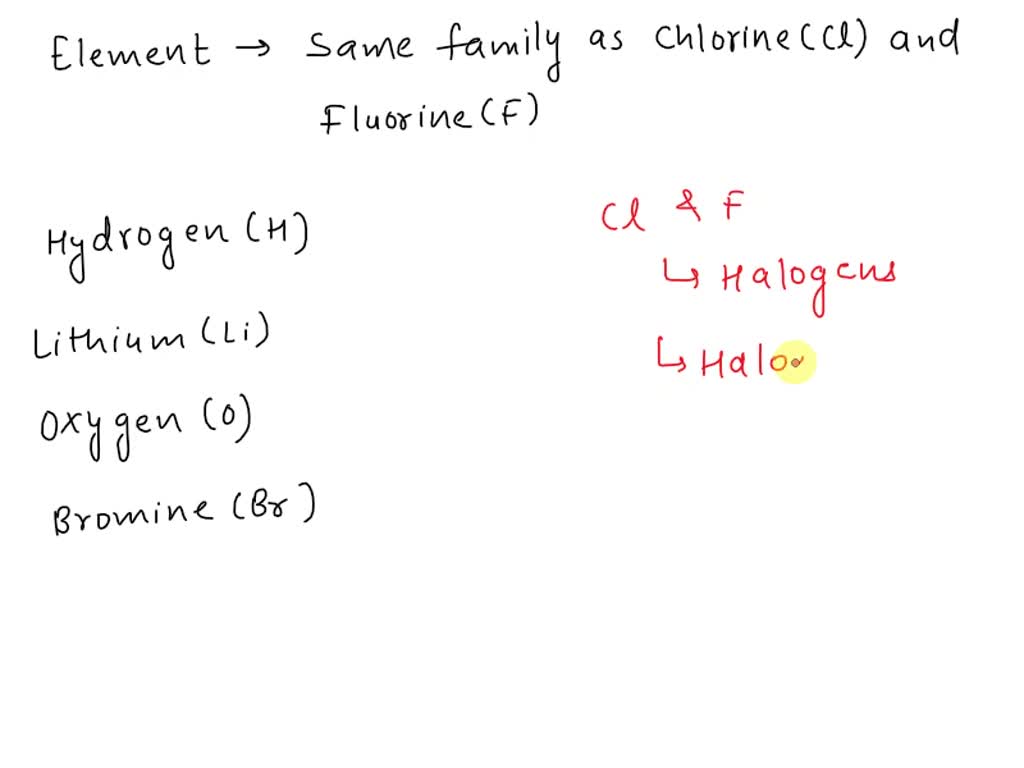 Element → Same family as Chlorine (Cl) and
Fluorine (F)
Hydrogen (H)
Lithium (Li)
Oxygen (O)
Bromine (Br)
Cl & F
↳ Halogens
↳ Halo